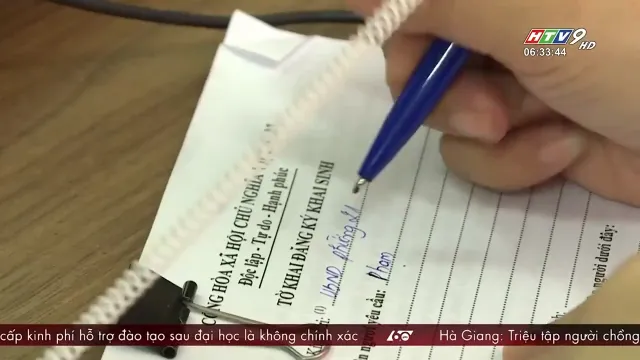 HTV9 HD
06:33:44
CỘNG HÒA XÃ HỘI CHỦ NGHĨA
Độc lập - Tự do - Hạnh phúc
TỜ KHAI ĐĂNG KÝ KHAI SINH
(1) UBND phường
yêu cầu: Phạm
người dưới đây:
cấp kinh phí hỗ trợ đào tạo sau đại học là không chính xác 60 Hà Giang: Triệu tập người chồng